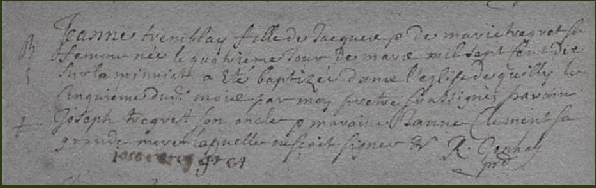 Jeanne tremblay fille de Jacques & de marie tregret sa
femme née le quatrieme jour de mars mil sept cent dix
sur la minuit a eté baptizée dans l'eglise de quilly le
cinquieme dud. mois par moy pretre soussigné parain
Joseph tregret son oncle & maraine Janne Clement sa
grande mere laquelle ne scait signer &
R.